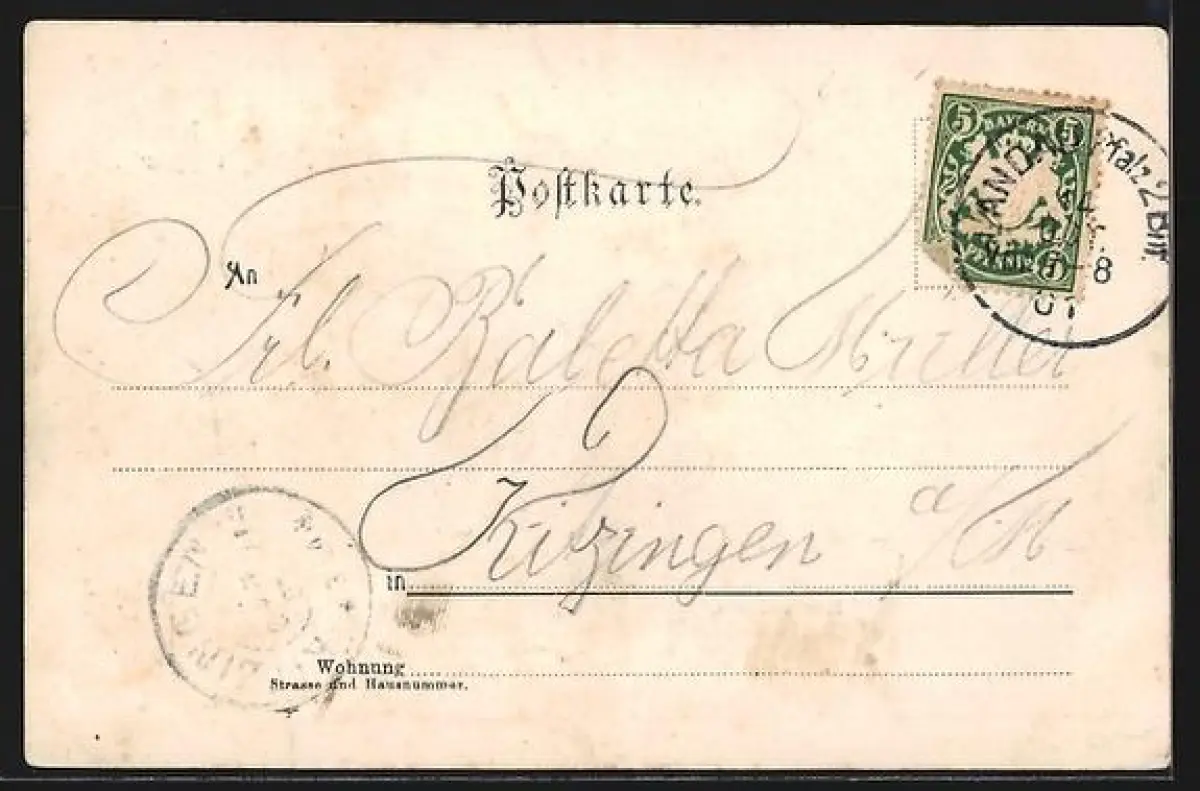 5 BAYERN 5
Pfalz 2 Bff.
LANDAU
7-8
01
Postkarte.
An
Frl. Babetta Müller
Kitzingen a/M.
in
KITZINGEN
Wohnung
Strasse und Hausnummer.